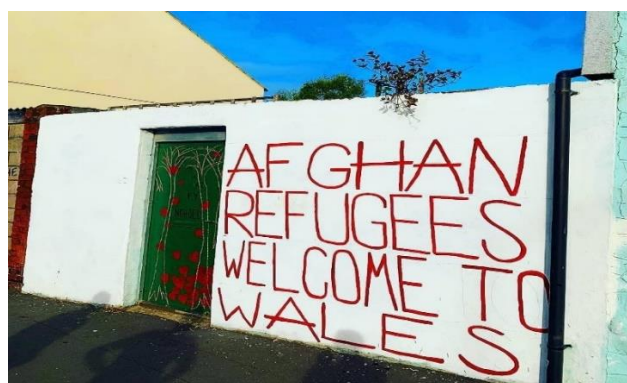 AFGHAN
REFUGEES
WELCOME TO
WALES